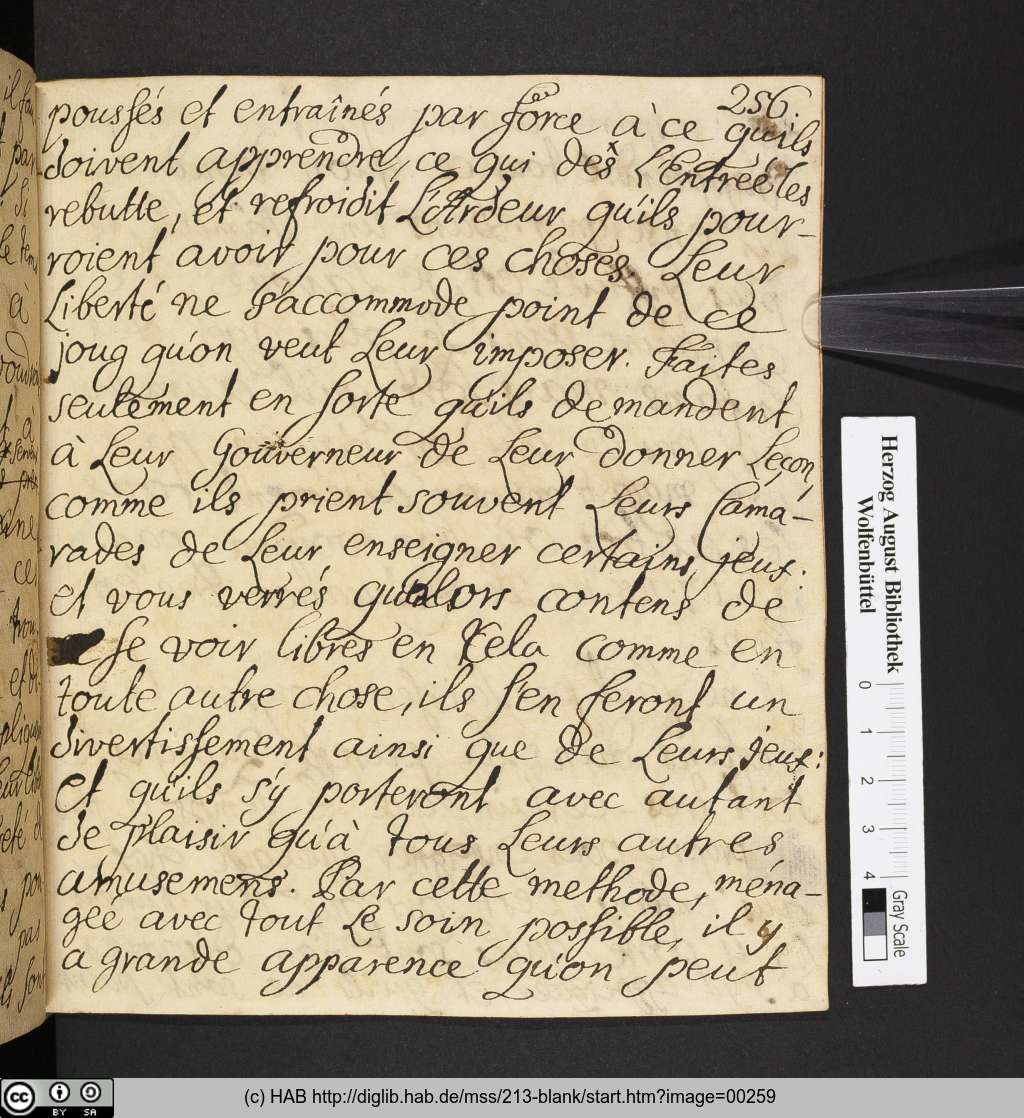 256.
poussés et entraînés par force à ce qu'ils
doivent apprendre, ce qui dés L'Entrée les
rebutte, et refroidit L'Ardeur qu'ils pour-
roient avoir pour ces choses; Leur
Liberté ne s'accommode point de ce
joug qu'on veut Leur imposer. Faites
seulement en sorte qu'ils demandent
à Leur Gouverneur de Leur donner Leçon,
comme ils prient souvent Leurs Cama-
rades de Leur enseigner certains jeux.
et vous verrés qu'alors contens de
se voir libres en Cela comme en
toute autre chose, ils s'en feront un
divertissement ainsi que de Leurs jeux:
et qu'ils s'y porteront avec autant
de plaisir qu'à tous Leurs autres
amusemens. Par cette methode, ména-
geé avec tout Le soin possible, il y
a grande apparence qu'on peut
Herzog August Bibliothek
Wolfenbüttel
0 1 2 3 4
Gray Scale
cc BY SA
(c) HAB http://diglib.hab.de/mss/213-blank/start.htm?image=00259